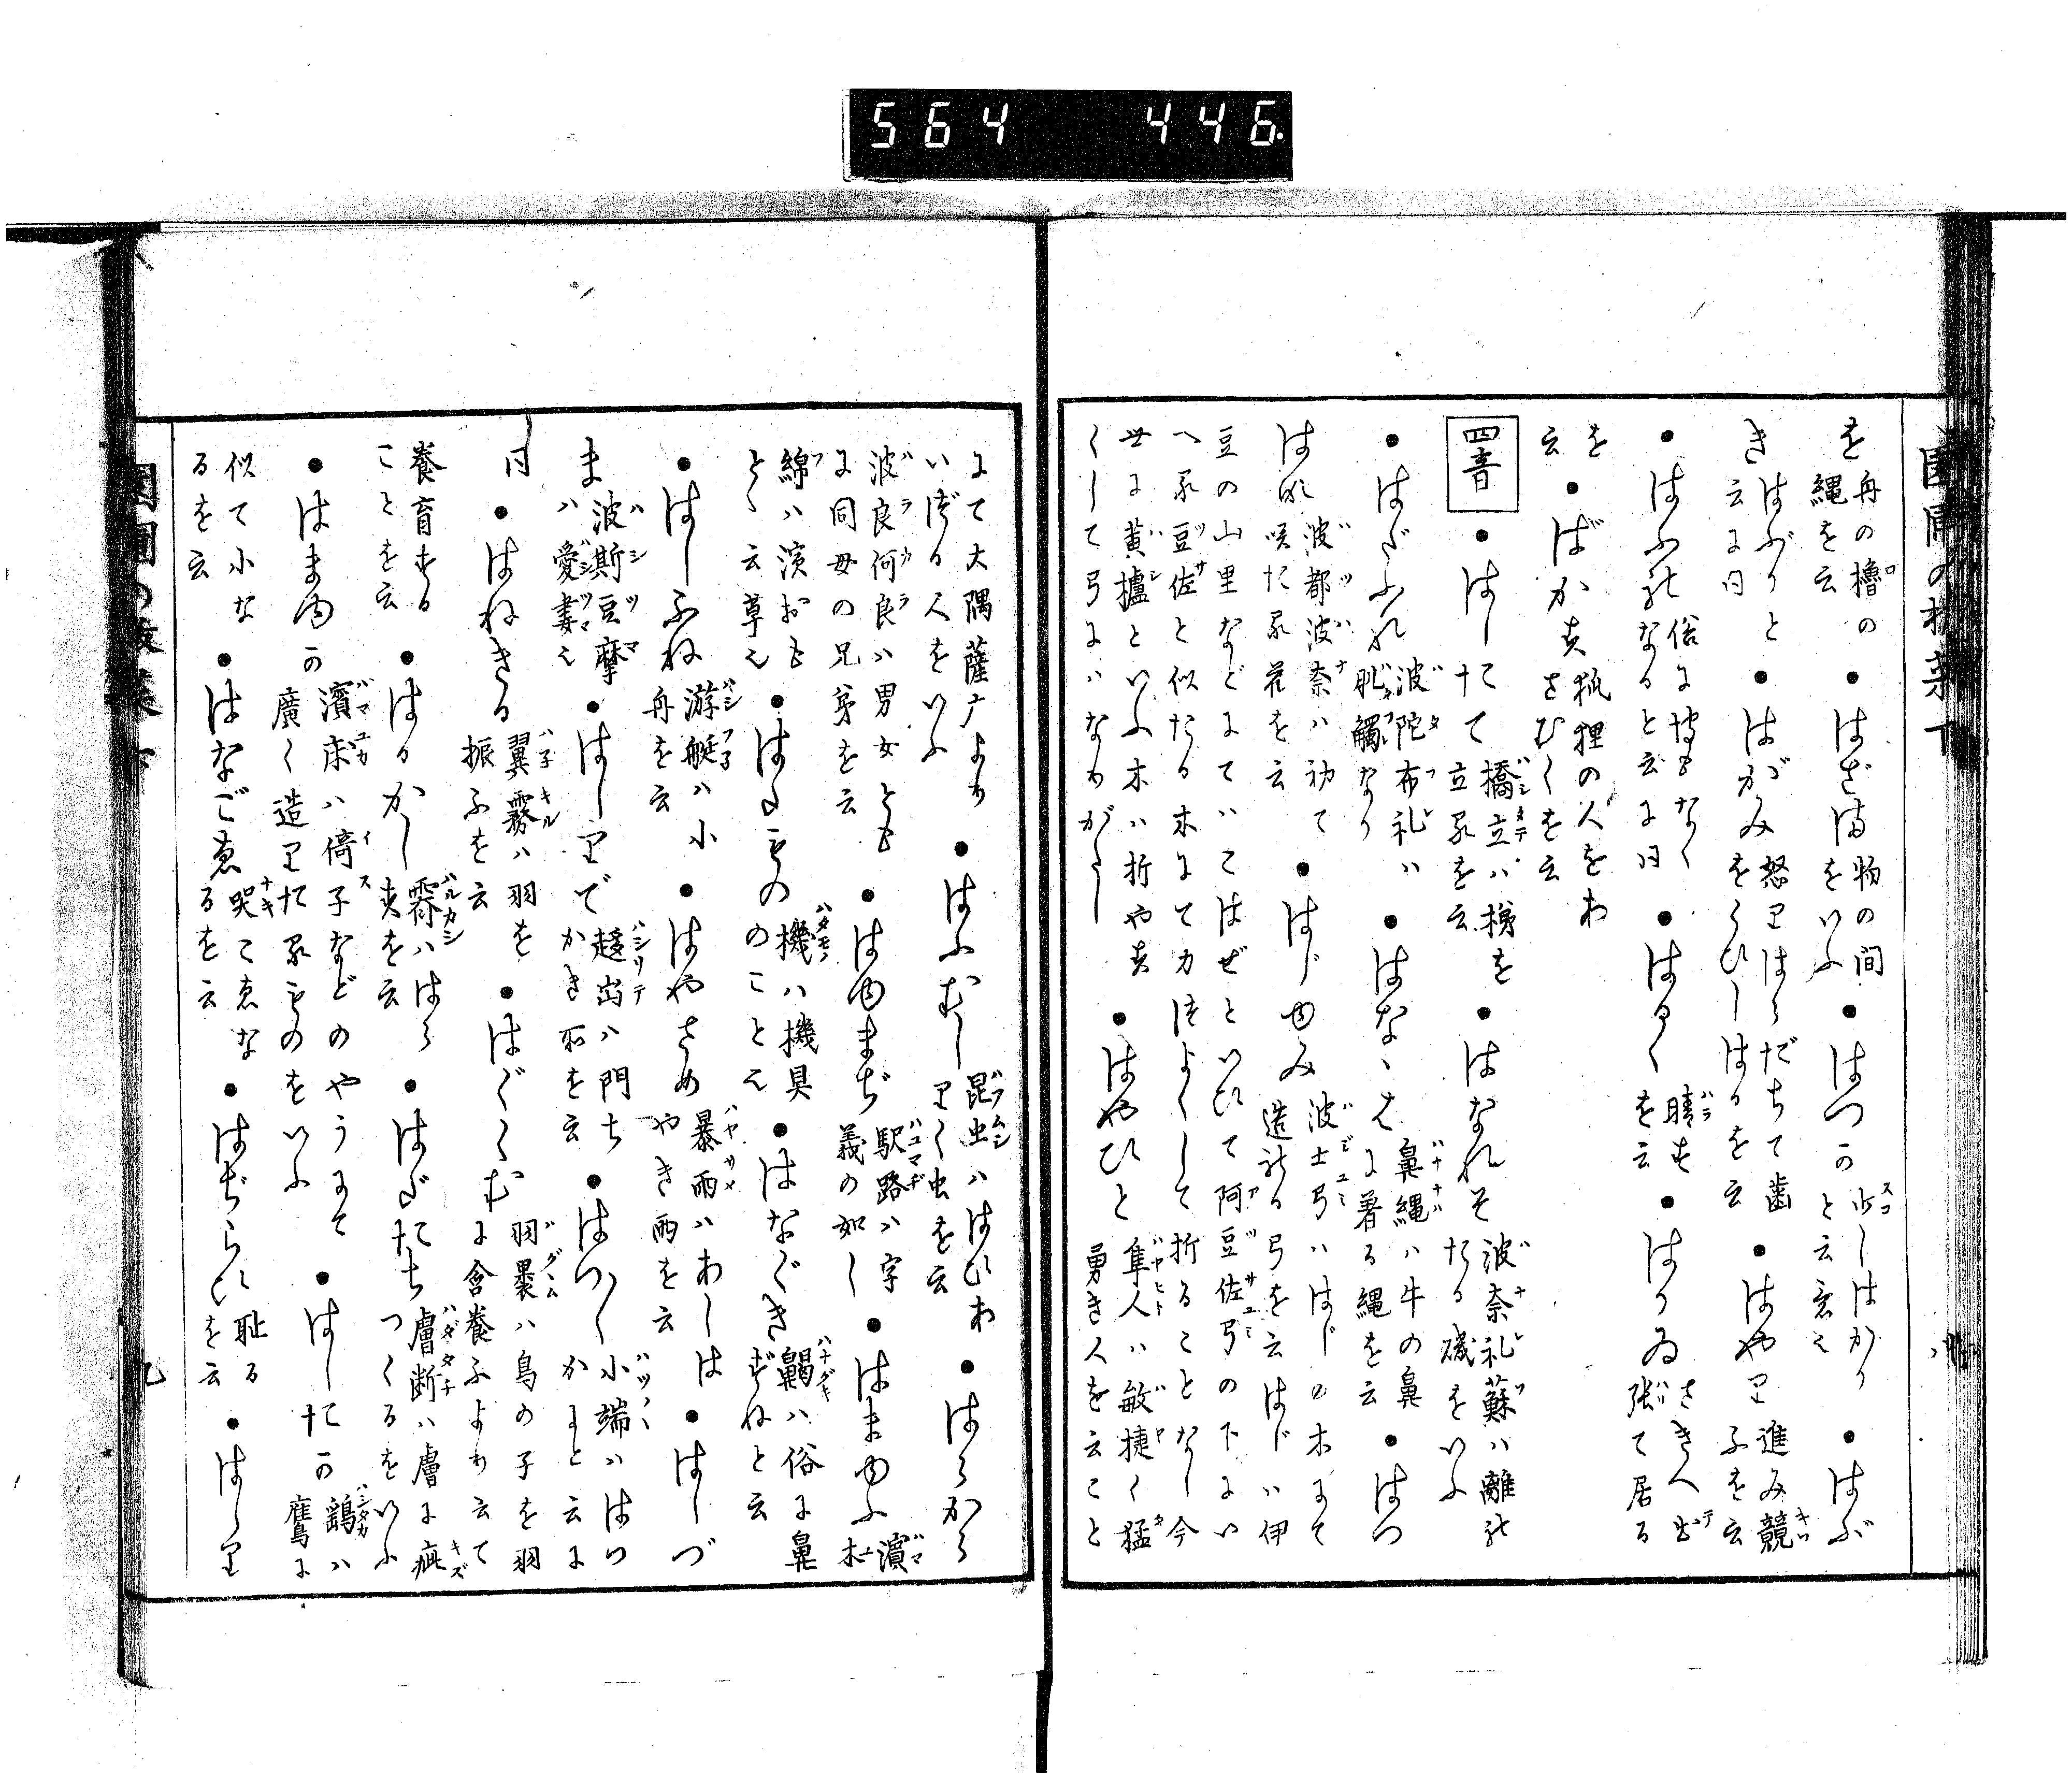 564 446.
を 舟の櫓の縄を云 ●はざま 物の間をいふ ●はつか 少しはかりと云意也 ●はぶ
き はぶりと云に同 ●はがみ 怒りはらだちて歯をくひしはるを云 ●はやり 進み競ふを云
●はふれ 俗に なくなると云に同 ●はるく 晴を云 ●はりゐ さきへ出張て居る
を云 ●ばかす 狐狸の人をわさむくを云
四音 ●はしたて 橋立ハ梯を立るを云 ●はなれそ 波奈礼蘇ハ離れたる磯をいふ
●はだふれ 波陀布礼ハ肌觸なり ●はなゝは 鼻縄ハ牛の鼻に著る縄を云 ●はつ
はな 波都波奈ハ初て咲たる花を云 ●はじゆみ 波士弓ハはじの木にて造れる弓を云はじハ伊
豆の山里などにていこはぜといひて阿豆佐弓の下にい
へる豆佐と似たる木にて力つよくして折ることなし今
世に黄櫨といふ木ハ折やす
くして弓にハなりがたし ●はやひと 隼人ハ敏捷く猛勇き人を云こと
にて大隅薩广より
いづる人をいふ ●はふむし 昆虫ハはひありく虫を云 ●はらから
波良何良ハ男女とも
に同母の兄弟を云 ●はゆまぢ 駅路ハ字義の如し ●はまゆふ 濱木
綿ハ濱おもとゝ云草也 ●はたもの 機ハ機具のこと也 ●はなぐき 齃ハ俗に鼻ばしねと云
●はしふね 游艇ハ小舟を云 ●はやさめ 暴雨ハあしはやき雨を云 ●はしづ
ま 波斯豆摩ハ愛妻也 ●はしりで 趍出ハ門ちかき所を云 ●はつ〳〵 小端ハはつかにと云に
同 ●はねきる 翼霧ハ羽を振ふを云 ●はぐくむ 羽裹ハ鳥の子を羽に含養ふより云て
養育することを云 ●はるかし 霽ハはらすを云 ●はだたち 膚断ハ膚に疵つくるをいふ
●はまゆか 濱床ハ倚子などのやうにて廣く造りたるものをいふ ●はしたか 鷂ハ鷹に
似て小なるを云 ●はなごゑ 哭こゑなるを云 ●はぢらひ 耻るを云 ●はしり
九